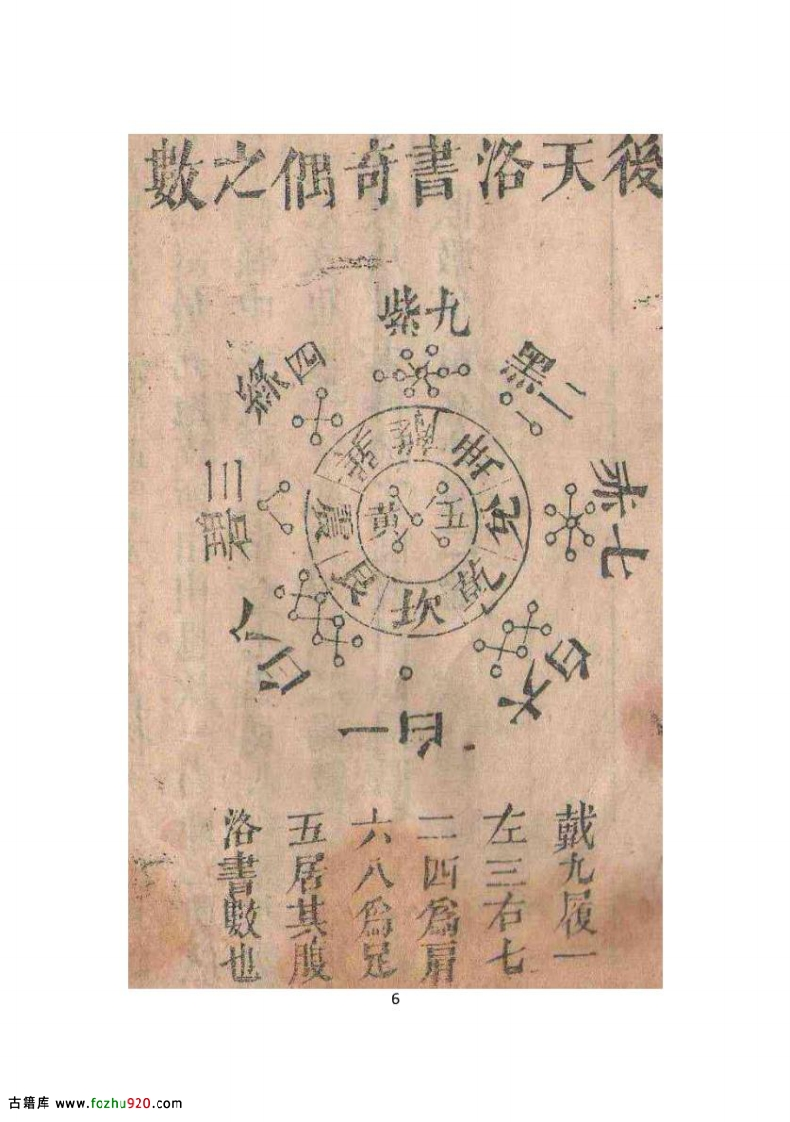 後天洛書奇偶之數
九紫
二黑
四綠
七赤
三碧
五黃
離
坤
巽
兌
震
乾
艮
坎
八白
六白
一白
戴九履一
左三右七
二四爲肩
六八爲足
五居其腹
洛書數也
6
古籍库 www.fozhu920.com